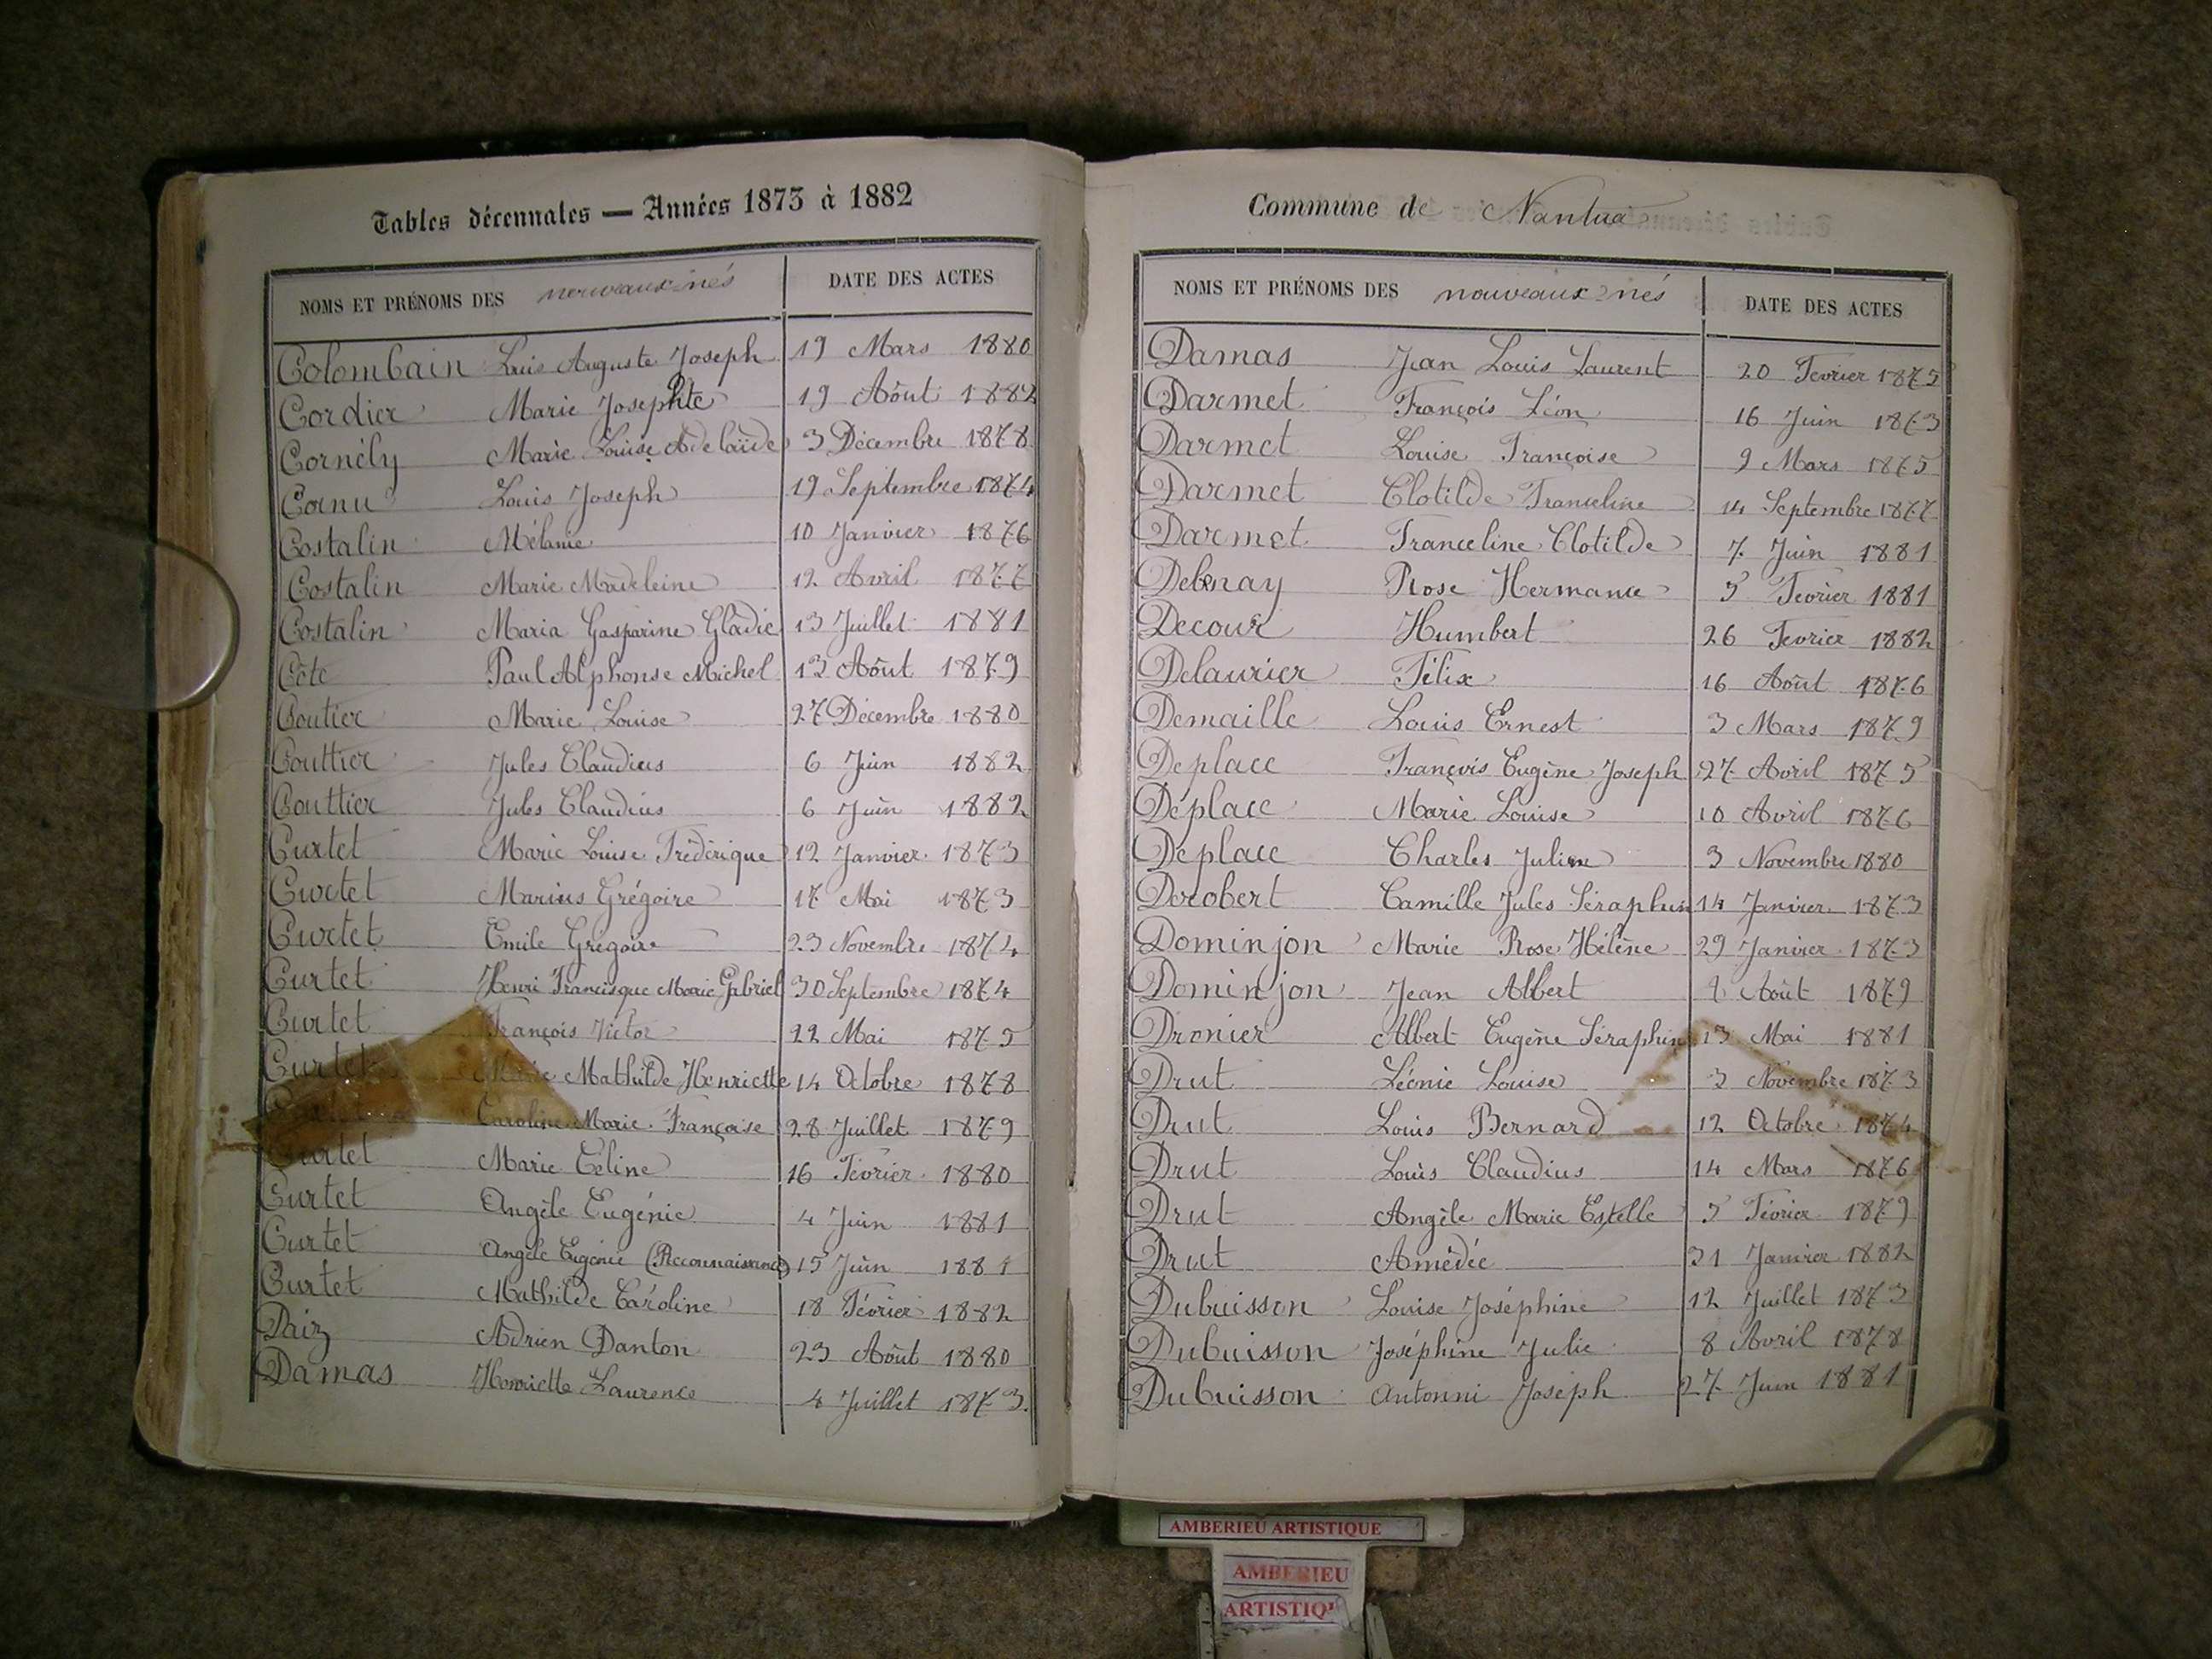 Tables décennales — Années 1873 à 1882
NOMS ET PRÉNOMS DES nouveaux-nés DATE DES ACTES
Colombain Louis Auguste Joseph 19 Mars 1880
Cordier Marie Josephte 19 Août 1882
Cornély Marie Louise Adelaïde 3 Décembre 1878
Cornu Louis Joseph 19 Septembre 1874
Costalin Mélanie 10 Janvier 1876
Costalin Marie Madeleine 12 Avril 1877
Costalin Maria Gasparine Gladie 13 Juillet 1881
Côte Paul Alphonse Michel 13 Août 1879
Coutier Marie Louise 27 Décembre 1880
Couttier Jules Claudius 6 Juin 1882
Couttier Jules Claudius 6 Juin 1882
Curtet Marie Louise Frédérique 12 Janvier 1873
Curtet Marius Grégoire 17 Mai 1873
Curtet Emile Grégoire 23 Novembre 1874
Curtet Henri Francisque Marie Gabriel 30 Septembre 1874
Curtet François Victor 22 Mai 1875
Curtet Marie Mathilde Henriette 14 Octobre 1878
Caroline Marie Françoise 28 Juillet 1879
Curtet Marie Céline 16 Février 1880
Curtet Angèle Eugénie 4 Juin 1881
Curtet Angèle Eugénie (Reconnaissance) 15 Juin 1881
Curtet Mathilde Caroline 18 Février 1882
Daiz Adrien Danton 23 Août 1880
Damas Henriette Laurence 4 Juillet 1873
Commune de Nantua
NOMS ET PRÉNOMS DES nouveaux-nés DATE DES ACTES
Damas Jean Louis Laurent 20 Fevrier 1875
Darmet François Léon 16 Juin 1873
Darmet Louise Françoise 9 Mars 1875
Darmet Clotilde Franceline 14 Septembre 1877
Darmet Franceline Clotilde 7 Juin 1881
Rose Hermance 5 Fevrier 1881
Decour Humbert 26 Fevrier 1882
Delaurier Félix 16 Août 1876
Demaille Louis Ernest 3 Mars 1879
Deplace François Eugène Joseph 27 Avril 1875
Déplace Marie Louise 10 Avril 1876
Déplace Charles Julien 3 Novembre 1880
Derobert Camille Jules Séraphin 14 Janvier 1873
Dominjon Marie Rose Hélène 29 Janvier 1873
Dominjon Jean Albert Août 1879
Dronier Albert Eugène Séraphin 13 Mai 1881
Drut Léonie Louise 3 Novembre 1873
Drut Louis Bernard 12 Octobre 1874
Drut Louis Claudius 14 Mars 1876
Drut Angèle Marie Estelle 5 Février 1879
Drut Amédée 31 Janvier 1882
Dubuisson Louise Joséphine 12 Juillet 1873
Dubuisson Joséphine Julie 8 Avril 1878
Dubuisson Antonni Joseph 27 Juin 1881
AMBERIEU ARTISTIQUE
AMBERIEU
ARTISTIQU